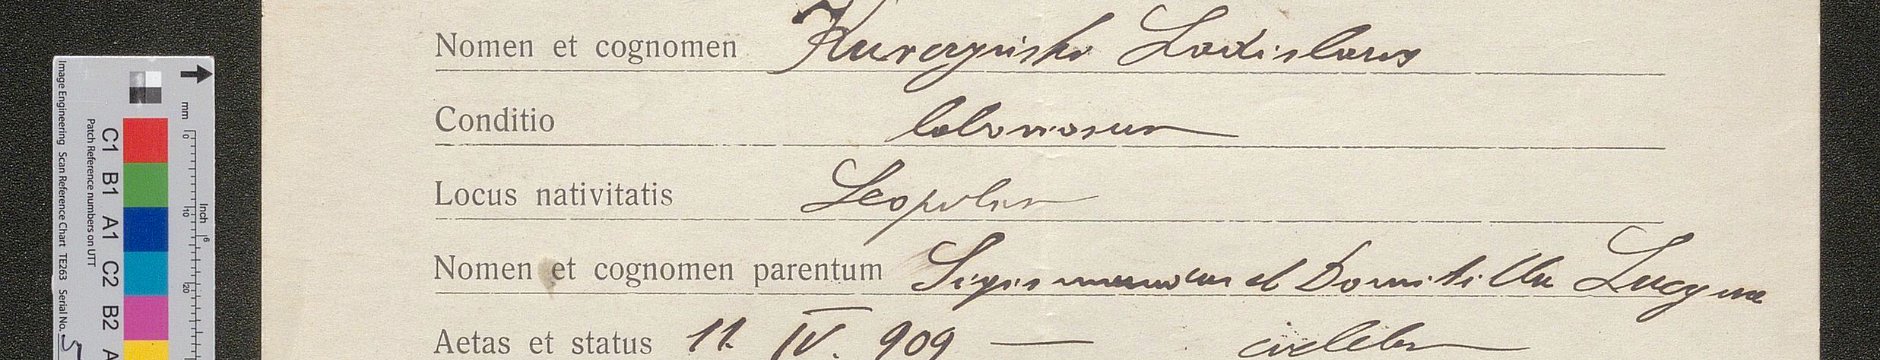 Nomen et cognomen Kurczyński Ladislaus
Conditio
Locus nativitatis Leopolis
Nomen et cognomen parentum Sigismundus et Domitilla Lucyna
Aetas et status 11. IV. 909 — caelebs
Image Engineering Scan Reference Chart TE263 Serial No. 5
Patch Reference numbers on UTT
C1 B1 A1 C2 B2 A
mm 0 10 20
Inch